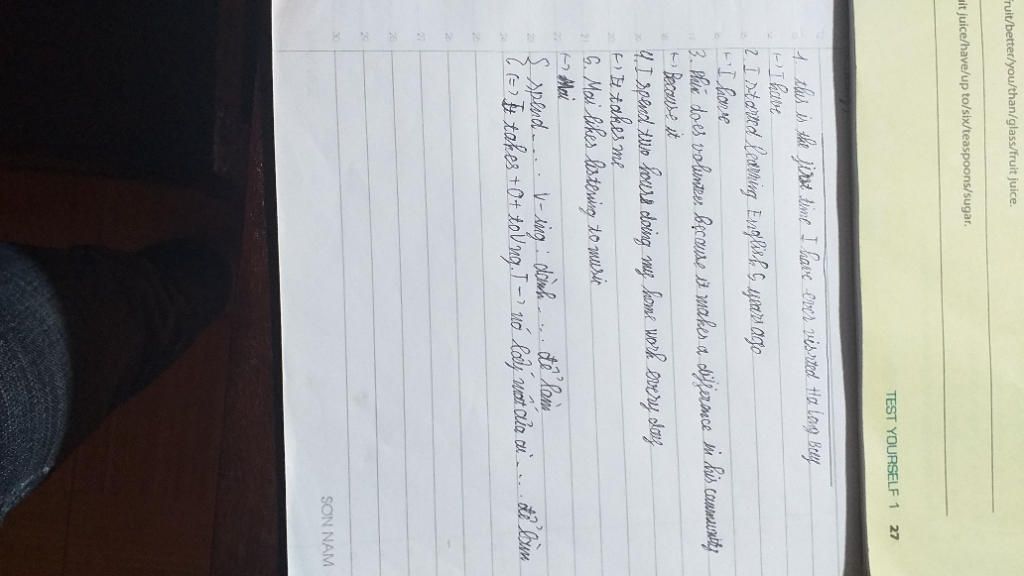 ruit/better/you/than/glass/fruit juice.
it juice/have/up to/six/teaspoons/sugar.
TEST YOURSELF 1 27
1. this is the first time I have ever visited Ha Long Bay
(->) I have
2. I started learning English 5 years ago
(->) I have
3. Phuc does volunteer because it makes a difference in his community
(->) Because it
4. I spend two hours doing my home work every day
(->) It takes me
5. Mai likes listening to music
(->) Mai
{ spend.... V-ing : dành.... để làm
{ (=) It takes + O + to Vng.T -> nó lấy mất của ai.... để làm
SON NAM